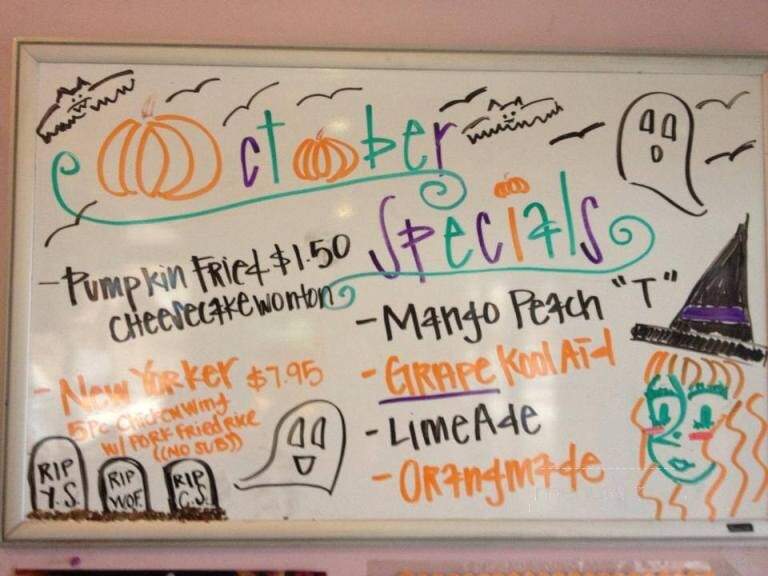 October
Specials
- Pumpkin Fried $1.50
Cheesecake wonton
- New Yorker $7.95
5pc chicken wing
w/ Pork Fried Rice
((No Sub))
- Mango Peach "T"
- Grape Kool Aid
- LimeAde
- Orangmade
RIP
Y.S.
RIP
WOF.
RIP
C.S.